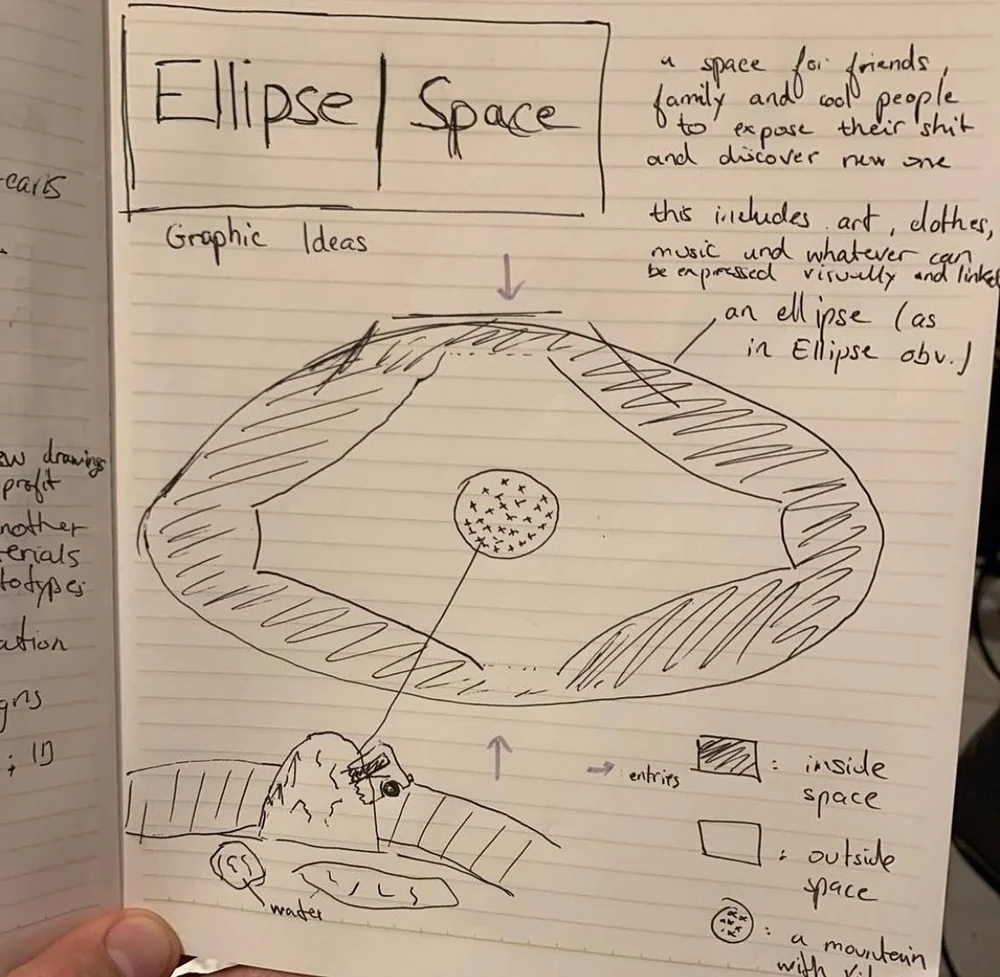 Ellipse | Space
a space for friends,
family and cool people
to expose their shit
and discover new one
this includes art, clothes,
music and whatever can
be expressed visually and linked
Graphic Ideas
an ellipse (as
in Ellipse obv.)
drawings
profit
ation
entries
: inside
space
: outside
space
water
: a mountain
with